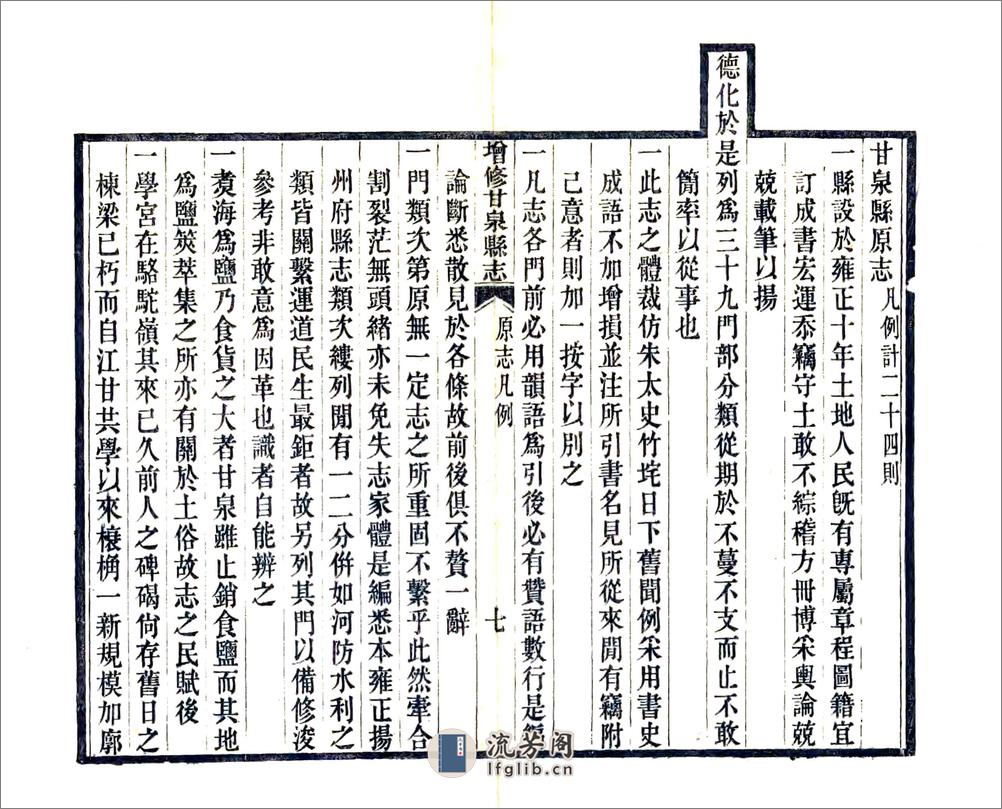 甘泉縣原志凡例計二十四則
一縣設於雍正十年土地人民旣有專屬章程圖籍宜
訂成書宏運忝竊守土敢不綜稽方冊博采輿論兢
兢載筆以揚
德化於是列爲三十九門部分類從期於不蔓不支而止不敢
簡率以從事也
一此志之體裁仿朱太史竹垞日下舊聞例采用書史
成語不加增損並注所引書名見所從來閒有竊附
己意者則加一按字以別之
一凡志各門前必用韻語爲引後必有贊語數行是編
論斷悉散見於各條故前後俱不贅一辭
增修甘泉縣志
原志凡例
七
一門類次第原無一定志之所重固不繫乎此然牽合
割裂茫無頭緒亦未免失志家體是編悉本雍正揚
州府縣志類次縷列閒有一二分併如河防水利之
類皆關繫運道民生最鉅者故另列其門以備修浚
參考非敢意爲因革也識者自能辨之
一煑海爲鹽乃食貨之大者甘泉雖止銷食鹽而其地
爲鹽筴萃集之所亦有關於土俗故志之民賦後
一學宮在駱駝嶺其來已久前人之碑碣尙存舊日之
棟梁已朽而自江甘共學以來榱桷一新規模加廓
流芳阁
lfglib.cn